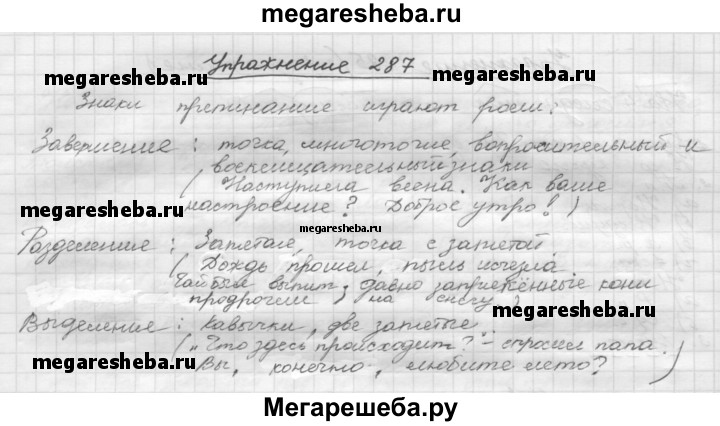 megaresheba.ru
Упражнение 287
megaresheba.ru megaresheba.ru
Знаки препинание играют роли:
Завершение: точка, многоточие, вопросительный и
восклицательный знаки
( Наступила весна. Как ваше
megaresheba.ru настроение? Доброе утро! )
megaresheba.ru
Разделение: Запятая, точка с запятой.
( Дождь прошел, пыль исчезла.
Чай был выпит; давно запряжённые кони
продрогли на снегу )
Выделение: кавычки, две запятые..
megaresheba.ru
( „Что здесь происходит? – спросил папа.
megaresheba.ru
Вы, конечно, любите лето? )
Мегарешеба.ру